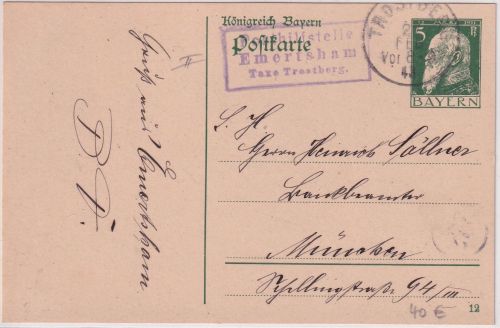 Königreich Bayern
Postkarte
Posthilfstelle
Emertsham
Taxe Trostberg.
TROSTBE
5 Pf
BAYERN
II
Gruß aus Emertsham
S. H.
Herrn Heinrich Söllner
Bankbeamter
München
Schellingstraße 94/III
40 €
12